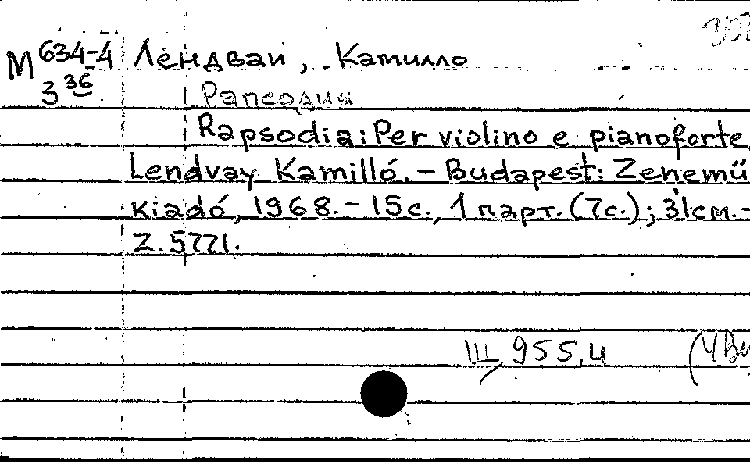 М 634-4 Лендваи, Камилло
3 36 Рапсодия
Rapsodia: Per violino e pianoforte
Lendvay Kamilló. – Budapest: Zenemű
kiadó, 1968. – 15с., 1 парт. (7с.); 31см. –
Z. 5771.
III 955,4